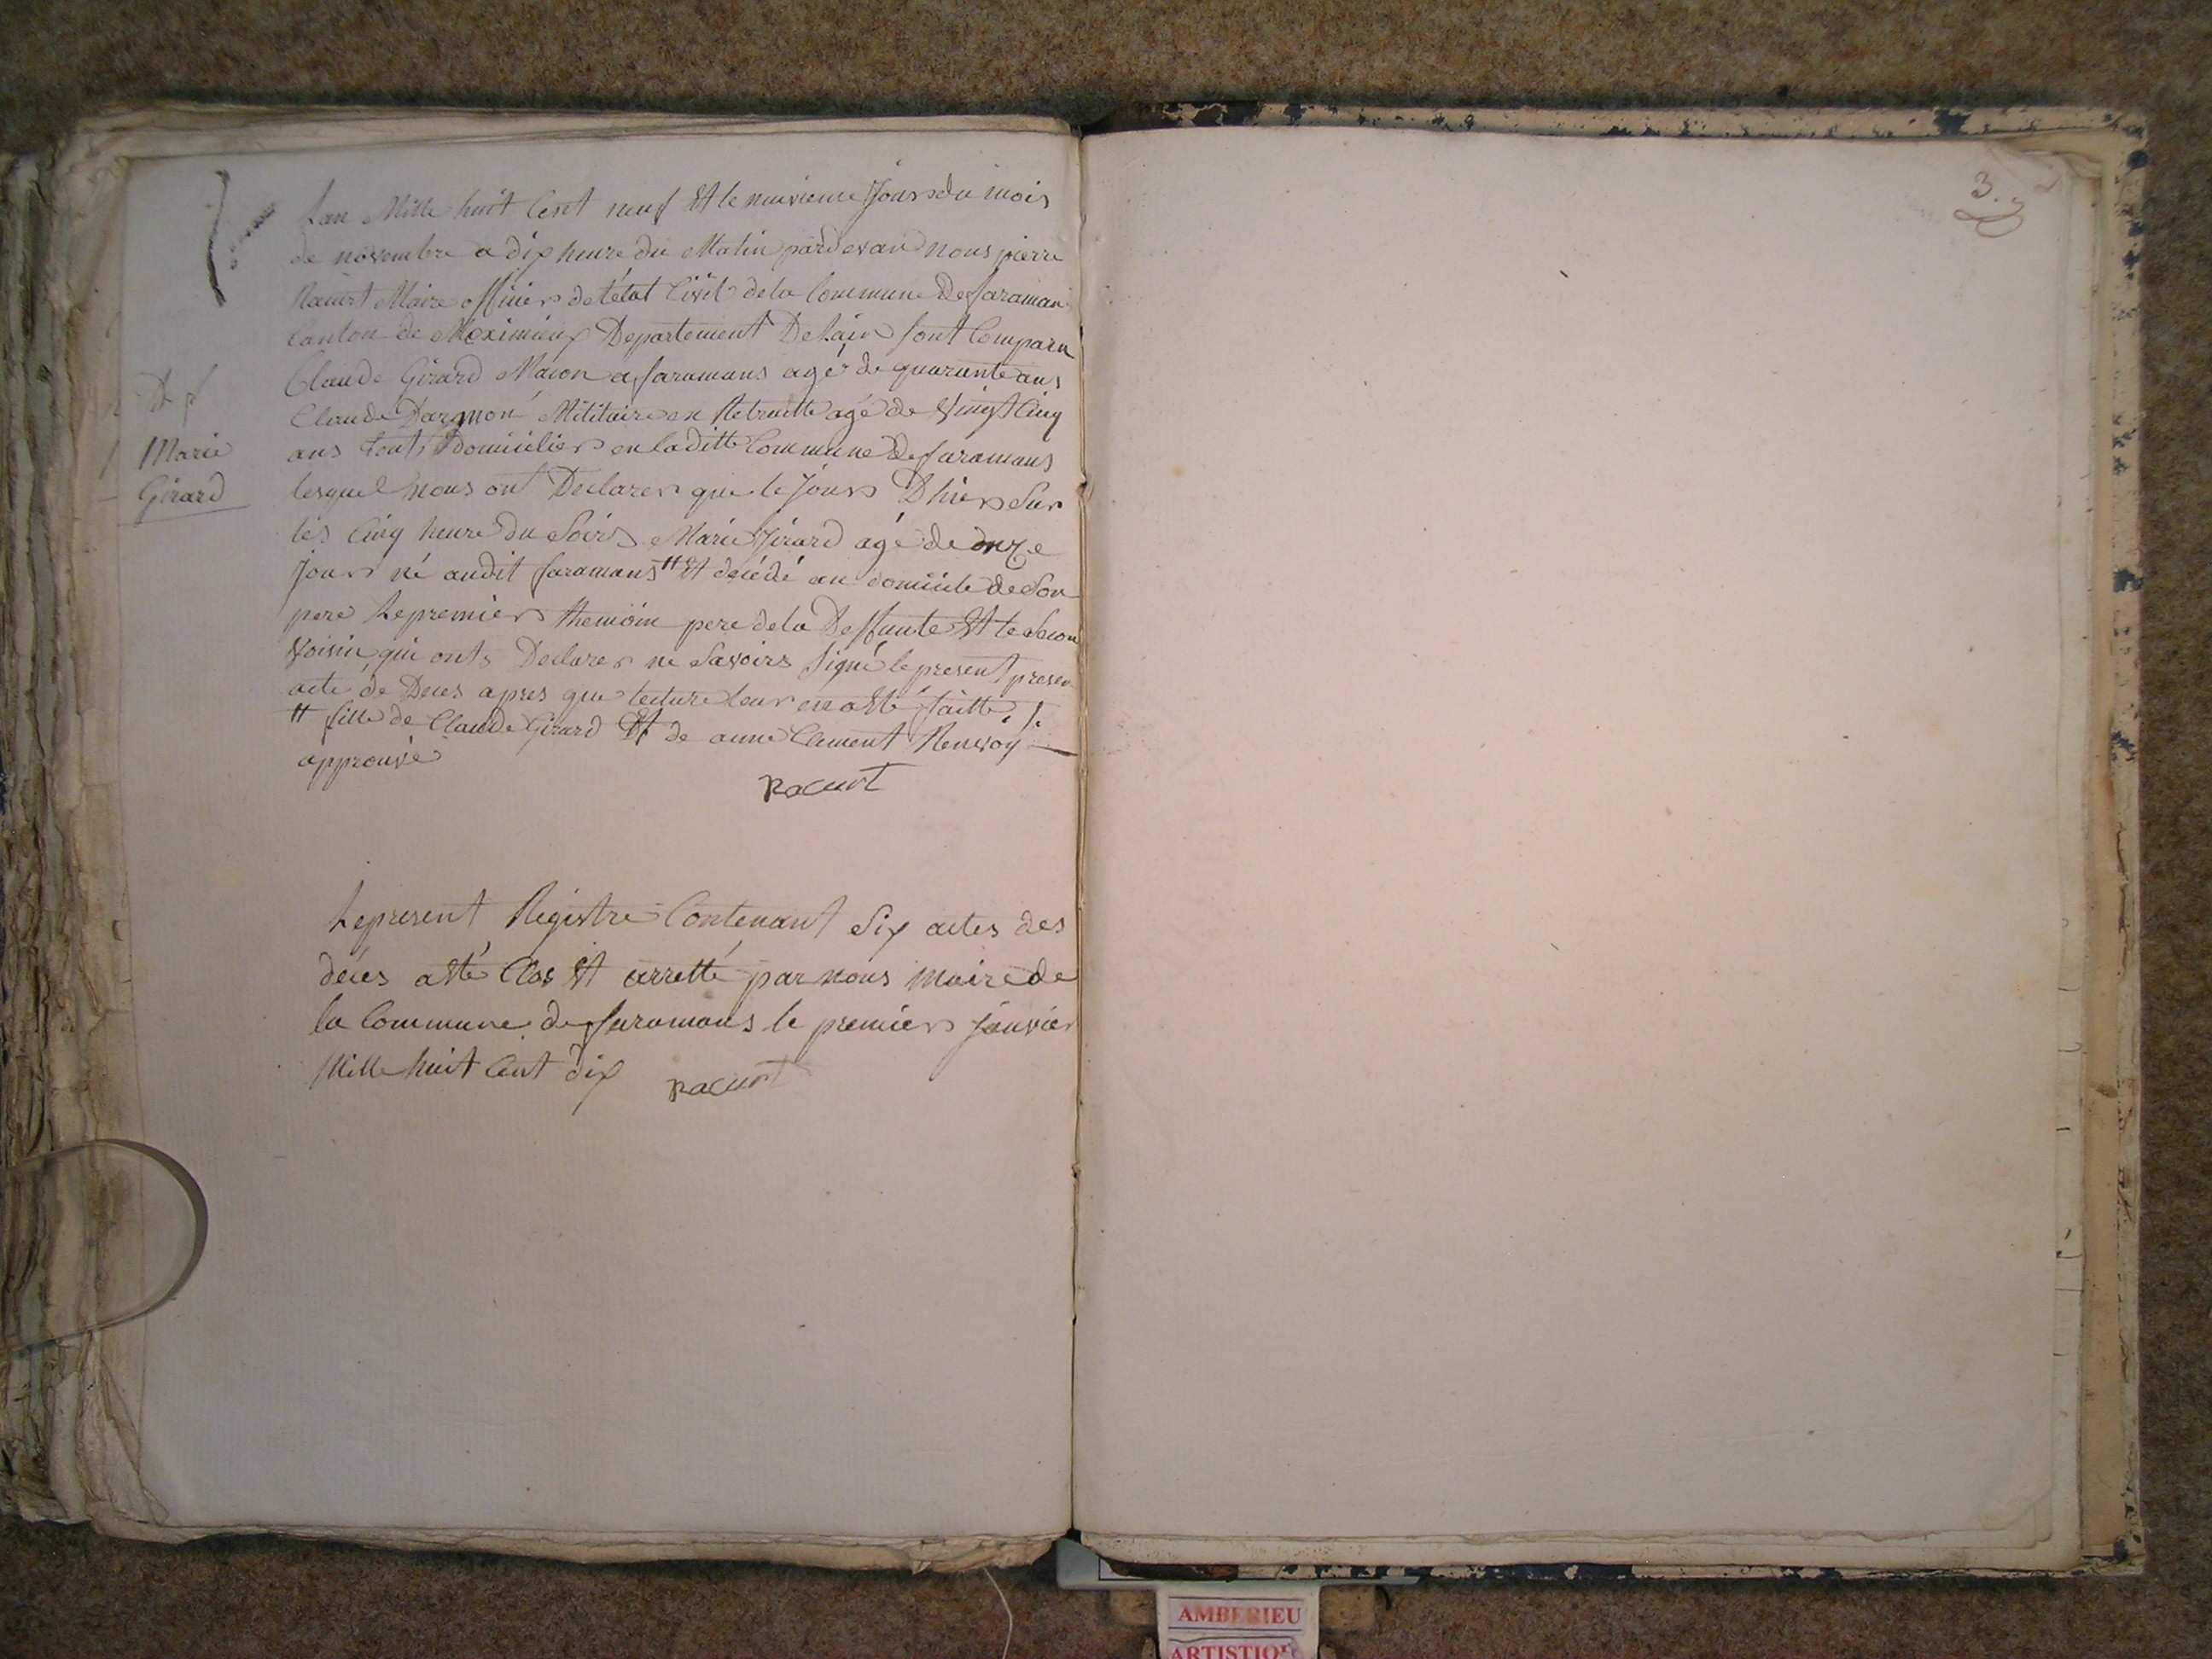 Lan Mille huit Cent neuf Et le neuvieme Jours du mois
de novembre a dix heure du Matin pardevan nous pierre
Racurt Maire officier de létat Civil de la Commune De faraman
Canton de Meximieux Departement De Lain sont Comparu
Claude Girard Macon a faramans agé de quarante ans
Claude Militaire en Retraitte agé de Vingt Cinq
ans touts Domicilier en laditte Commune De faramans
lesquel nous ont Declarer que le Jours Dhier Sur
les Cinq heure du Soirs Marie Girard agé de onze
Jours né audit faramans # Et décédé au domicile de Son
pere Le premiers themoin pere de la Deffunte Et le Secon
Voisin qui onts Declarer ne Savoirs Signé le present presen
acte de Deces apres que lecture leur en a Eté faitte ./.
# fille de Claude Girard Et de anne Clement Renvoy
approuvé
Racurt
Df
Marie
Girard
Le present Registre Contenant Six actes des
déces a Eté Clos Et arretté par nous Maire de
la Commune de faramans le premiers Janvier
Mille huit Cent dix Racurt
3.
AMBERIEU